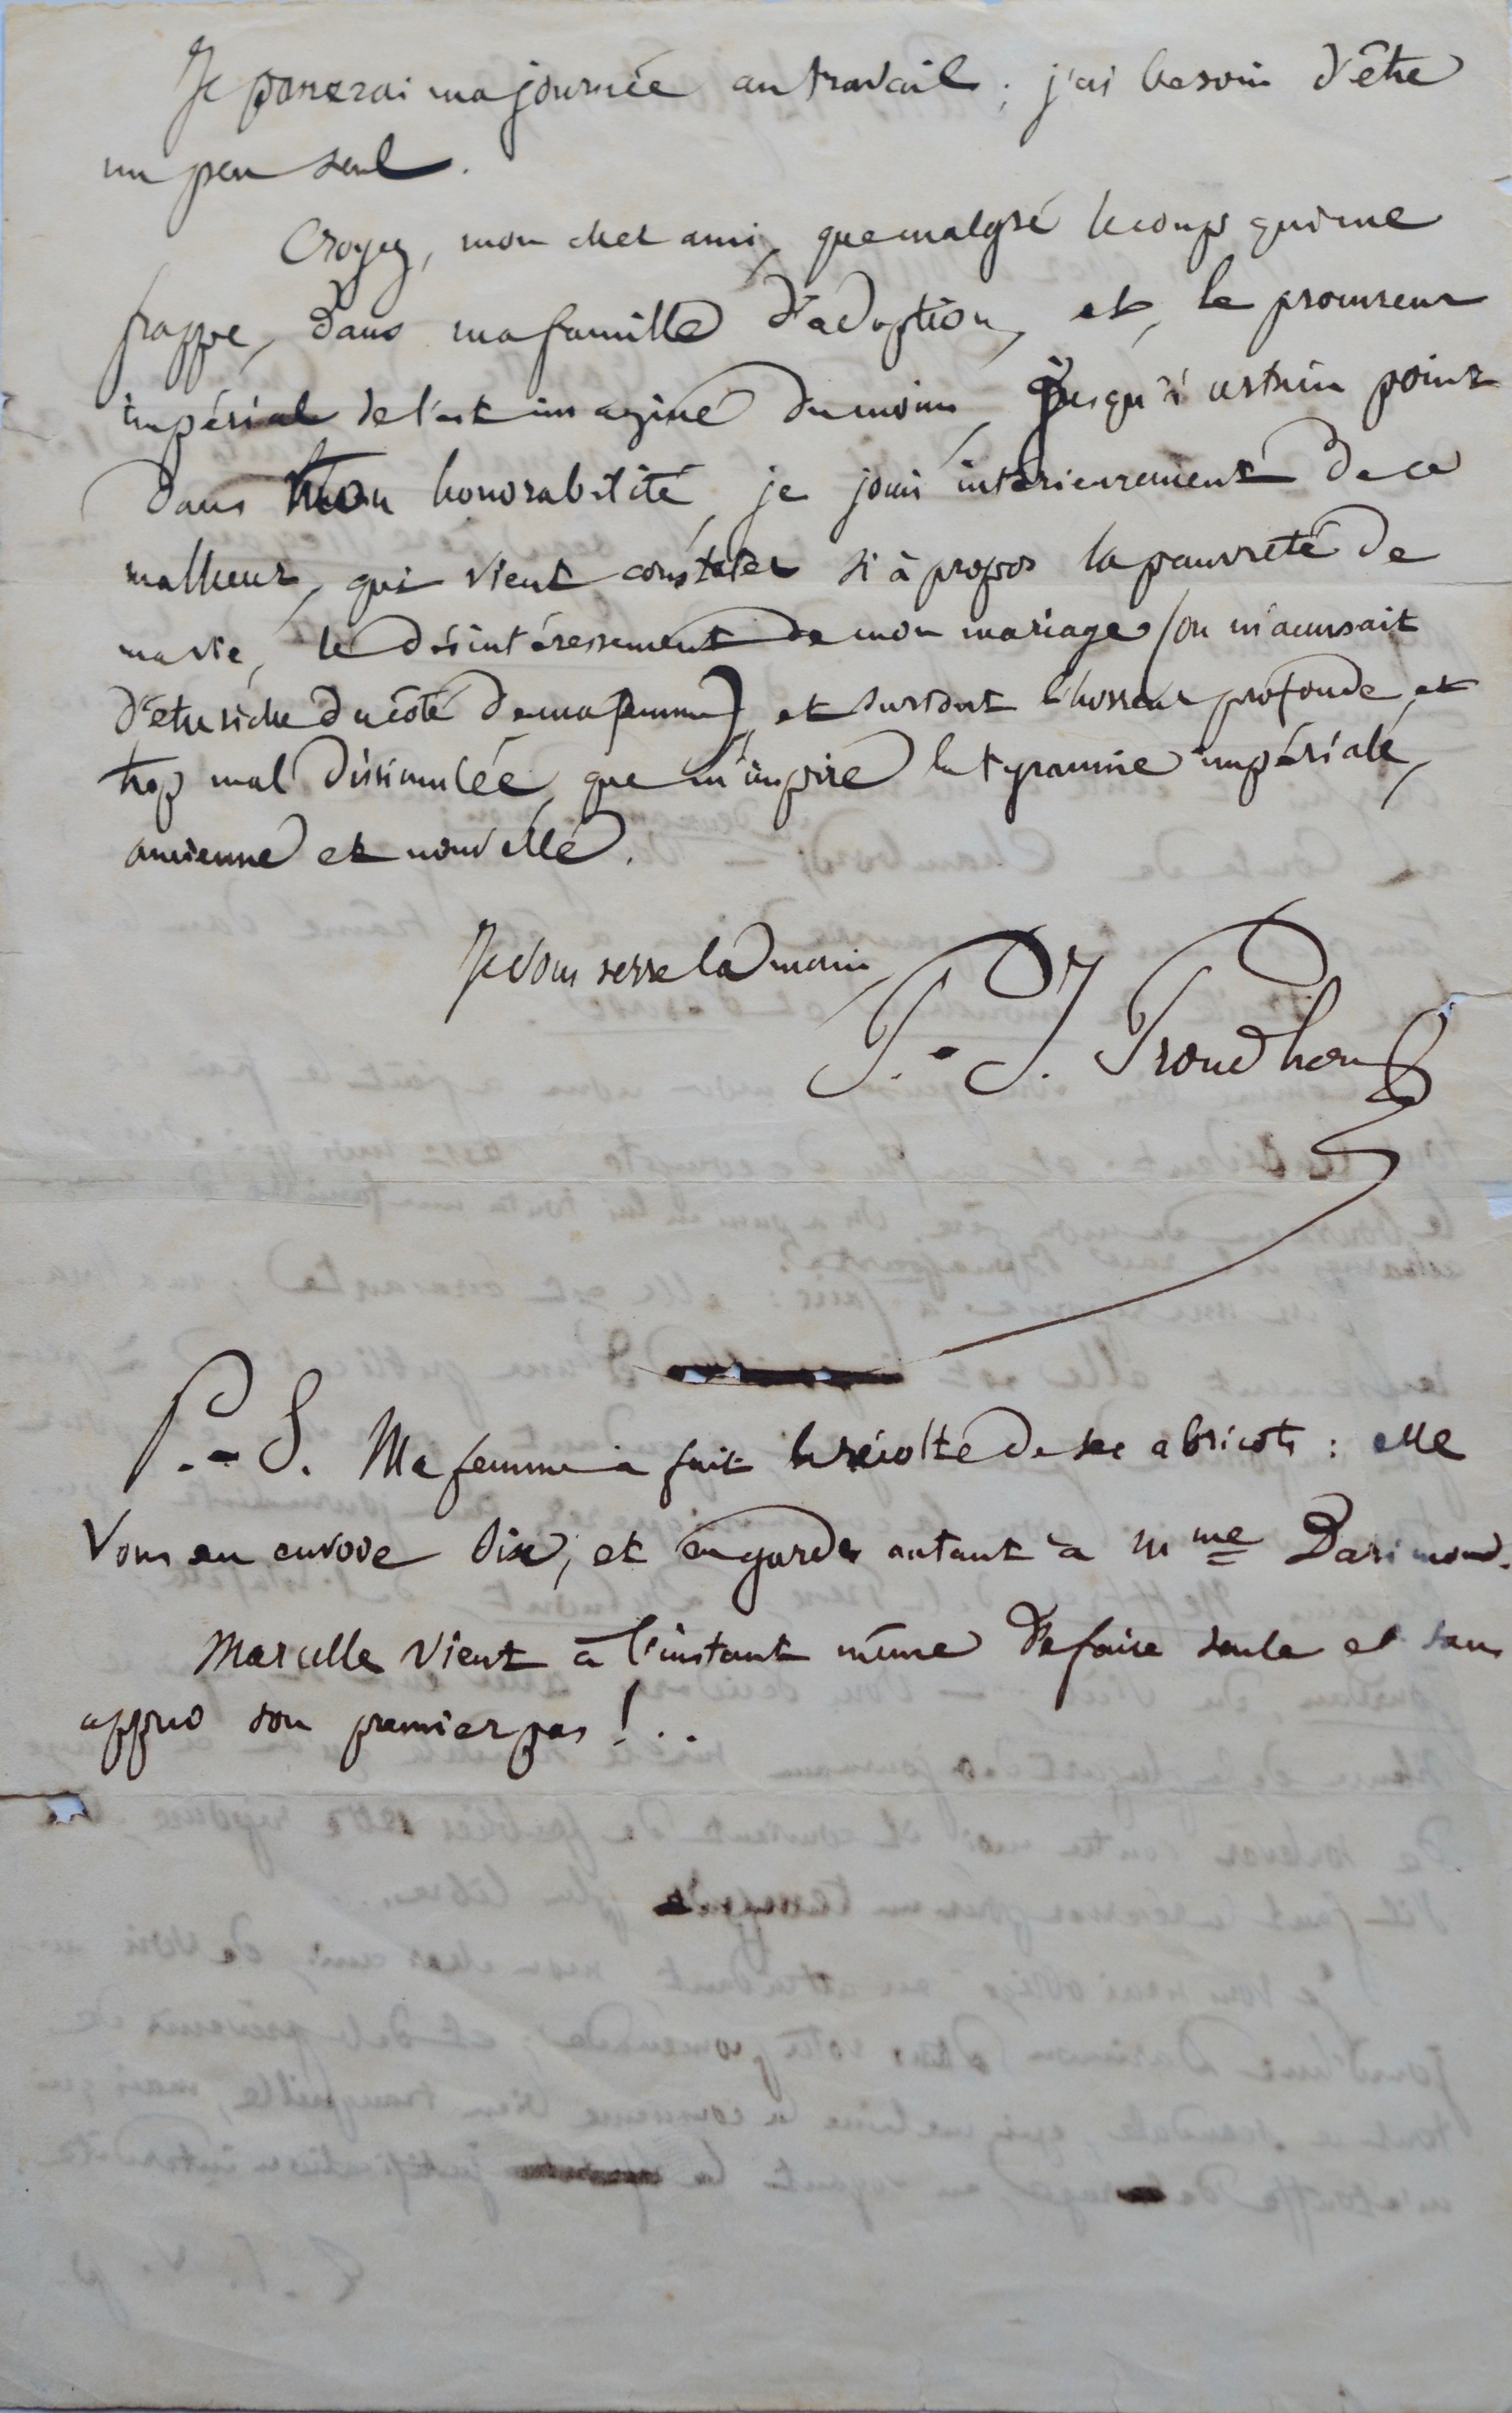 Je passerai ma journée au travail ; j'ai besoin d'être
un peu seul.
Croyez, mon cher ami, que malgré le coup qui me
frappe, dans ma famille d'adoption, et, le procureur
impérial se l'est imaginé du moins, jusqu'à certain point
dans mon honorabilité, je jouis intérieurement de ce
malheur, qui vient constater si à propos la pauvreté de
ma vie, le désintéressement de mon mariage (on m'accusait
d'être riche du côté de ma femme), et surtout l'horreur profonde, et
trop mal dissimulée, que m'inspire la tyrannie impériale,
ancienne et nouvelle.
Je vous serre la main,
P.-J. Proudhon
P.-S. Ma femme a fait la récolte de ses abricots : elle
vous en envoie dix, et en garde autant à Mme Darimon.
Marcelle vient à l'instant même de faire seule et sans
appui son premier pas !..